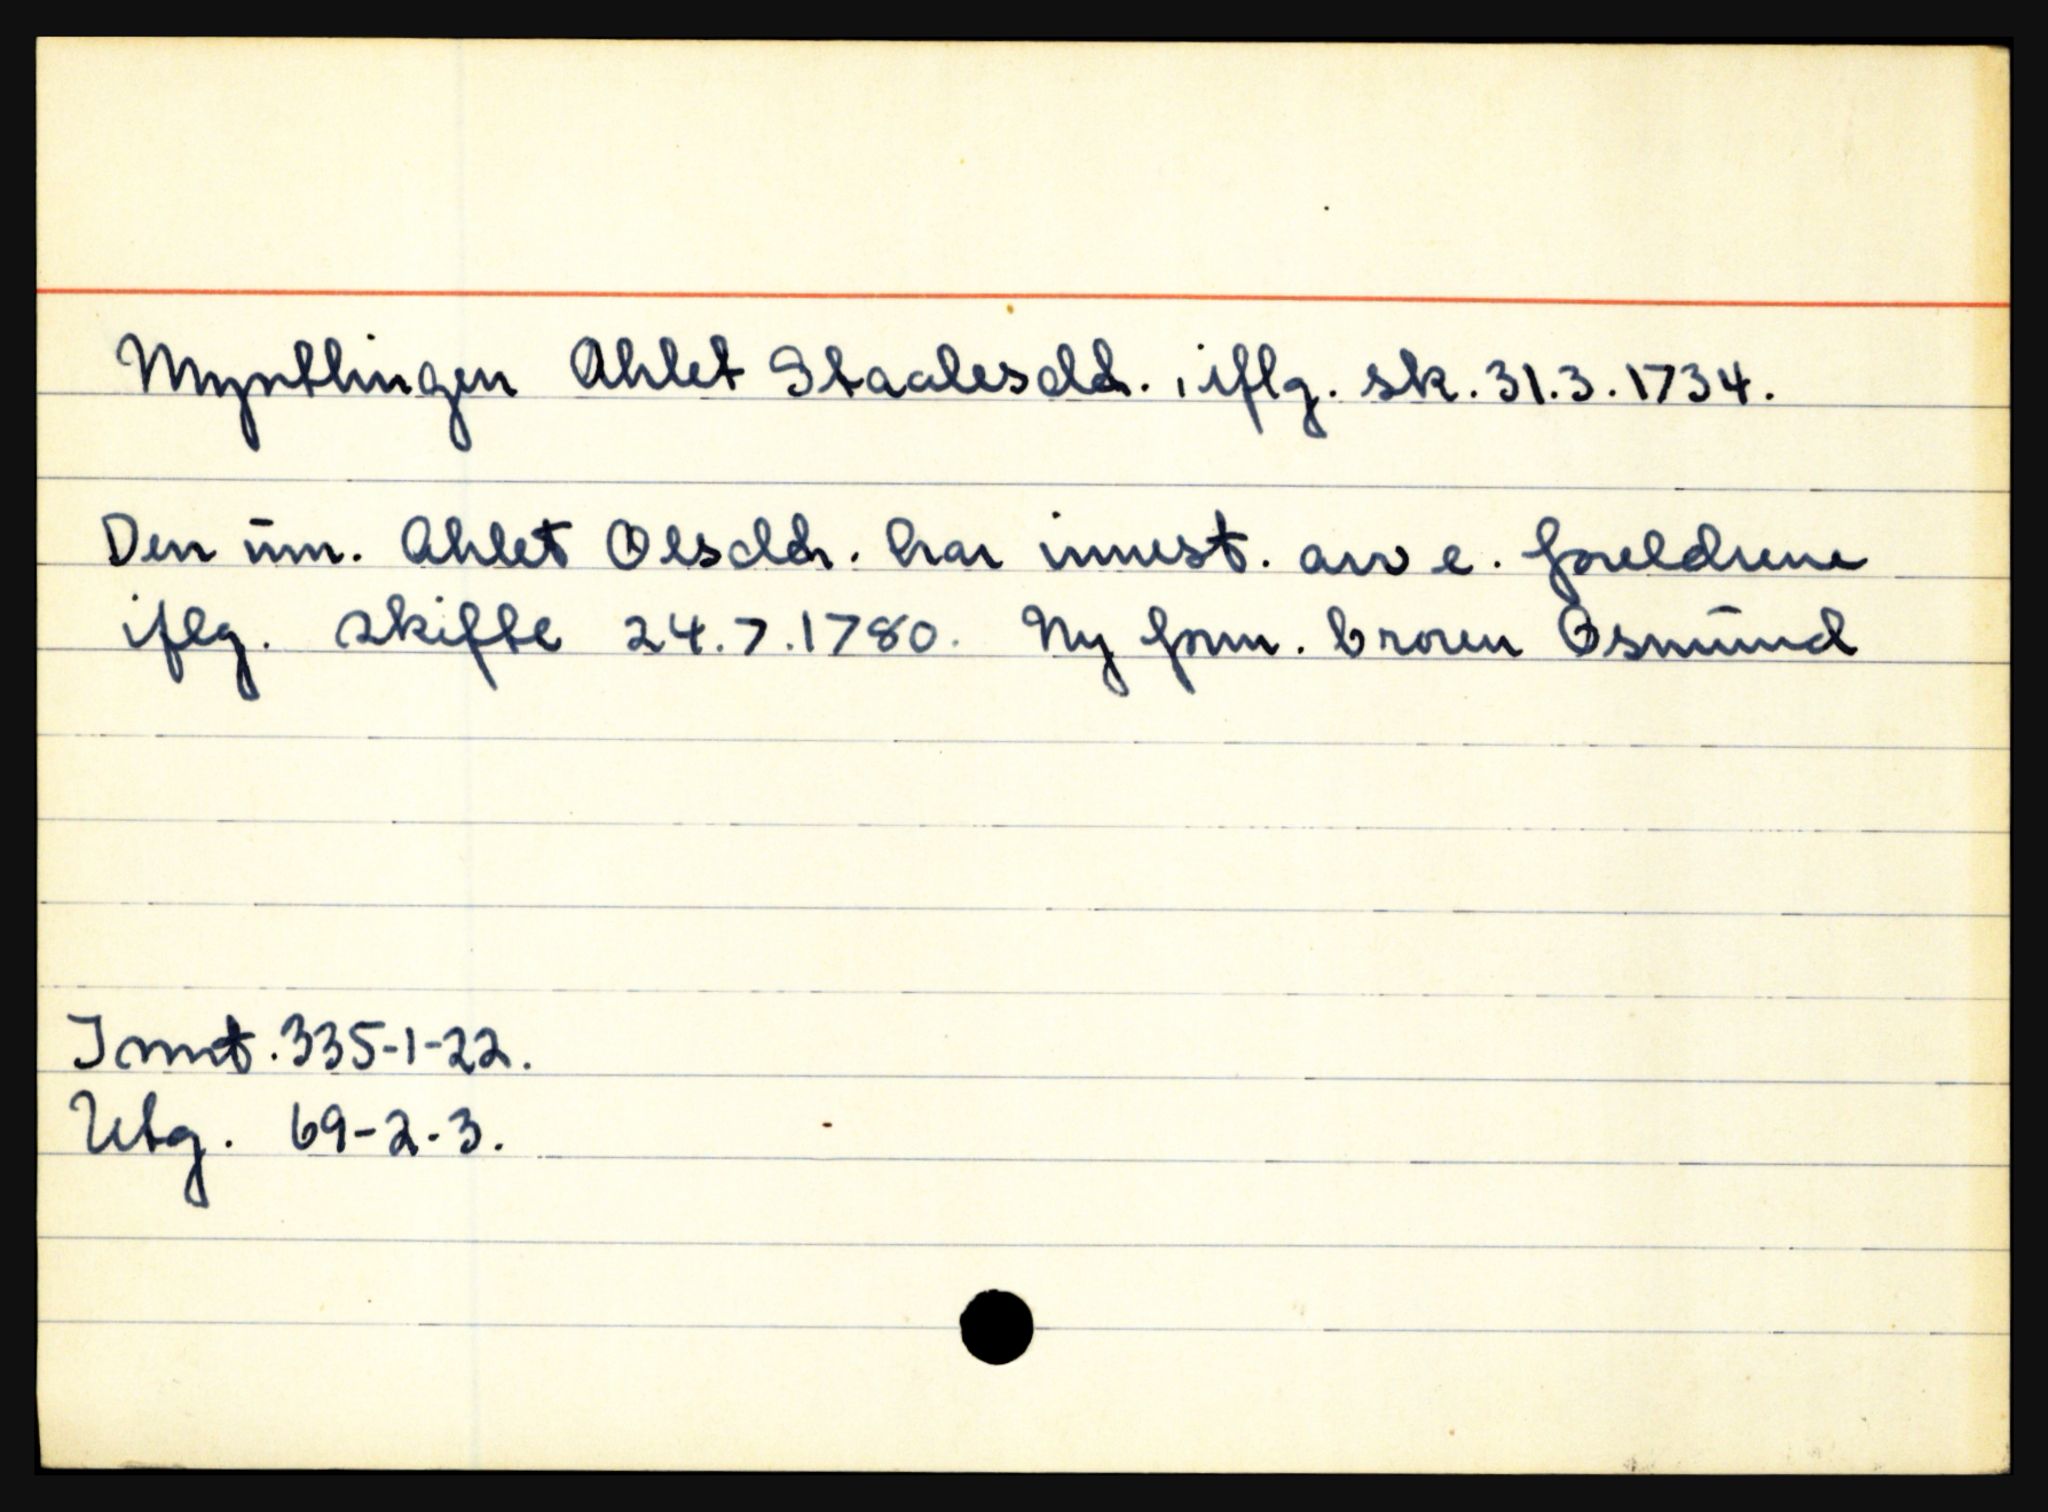 Myntlingen Ahlet Staalesdtr., iflg. sk. 31.3.1734.
Den um. Ahlet Olsdtr. har innest. arv e. foreldrene
iflg. skifte 24.7.1780. Ny form. broren Osmund
Innt. 335-1-22.
Utg. 69-2-3.